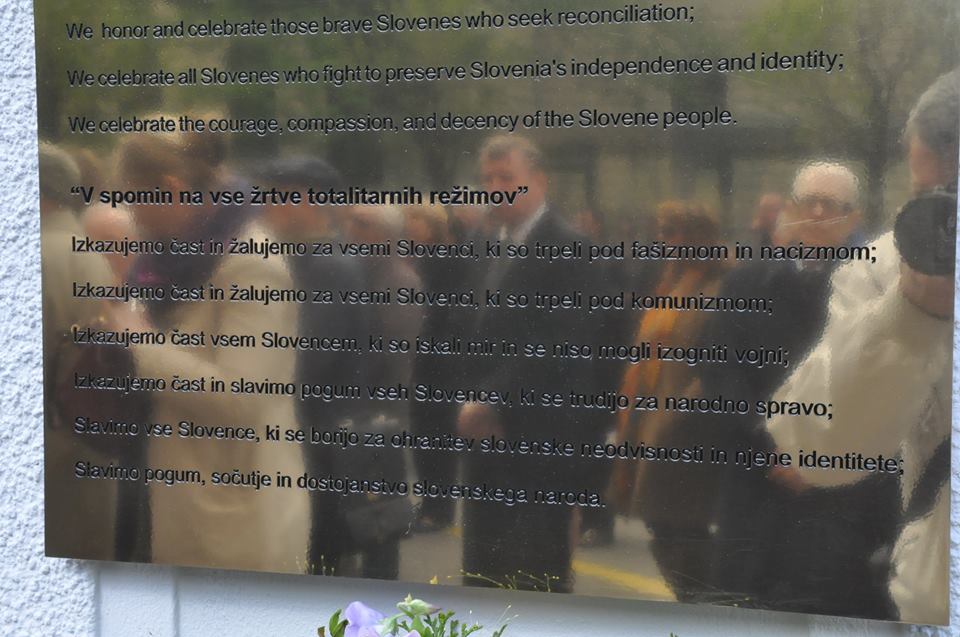 We honor and celebrate those brave Slovenes who seek reconciliation;
We celebrate all Slovenes who fight to preserve Slovenia's independence and identity;
We celebrate the courage, compassion, and decency of the Slovene people.
“V spomin na vse žrtve totalitarnih režimov”
Izkazujemo čast in žalujemo za vsemi Slovenci, ki so trpeli pod fašizmom in nacizmom;
Izkazujemo čast in žalujemo za vsemi Slovenci, ki so trpeli pod komunizmom;
Izkazujemo čast vsem Slovencem, ki so iskali mir in se niso mogli izogniti vojni;
Izkazujemo čast in slavimo pogum vseh Slovencev, ki se trudijo za narodno spravo;
Slavimo vse Slovence, ki se borijo za ohranitev slovenske neodvisnosti in njene identitete;
Slavimo pogum, sočutje in dostojanstvo slovenskega naroda.